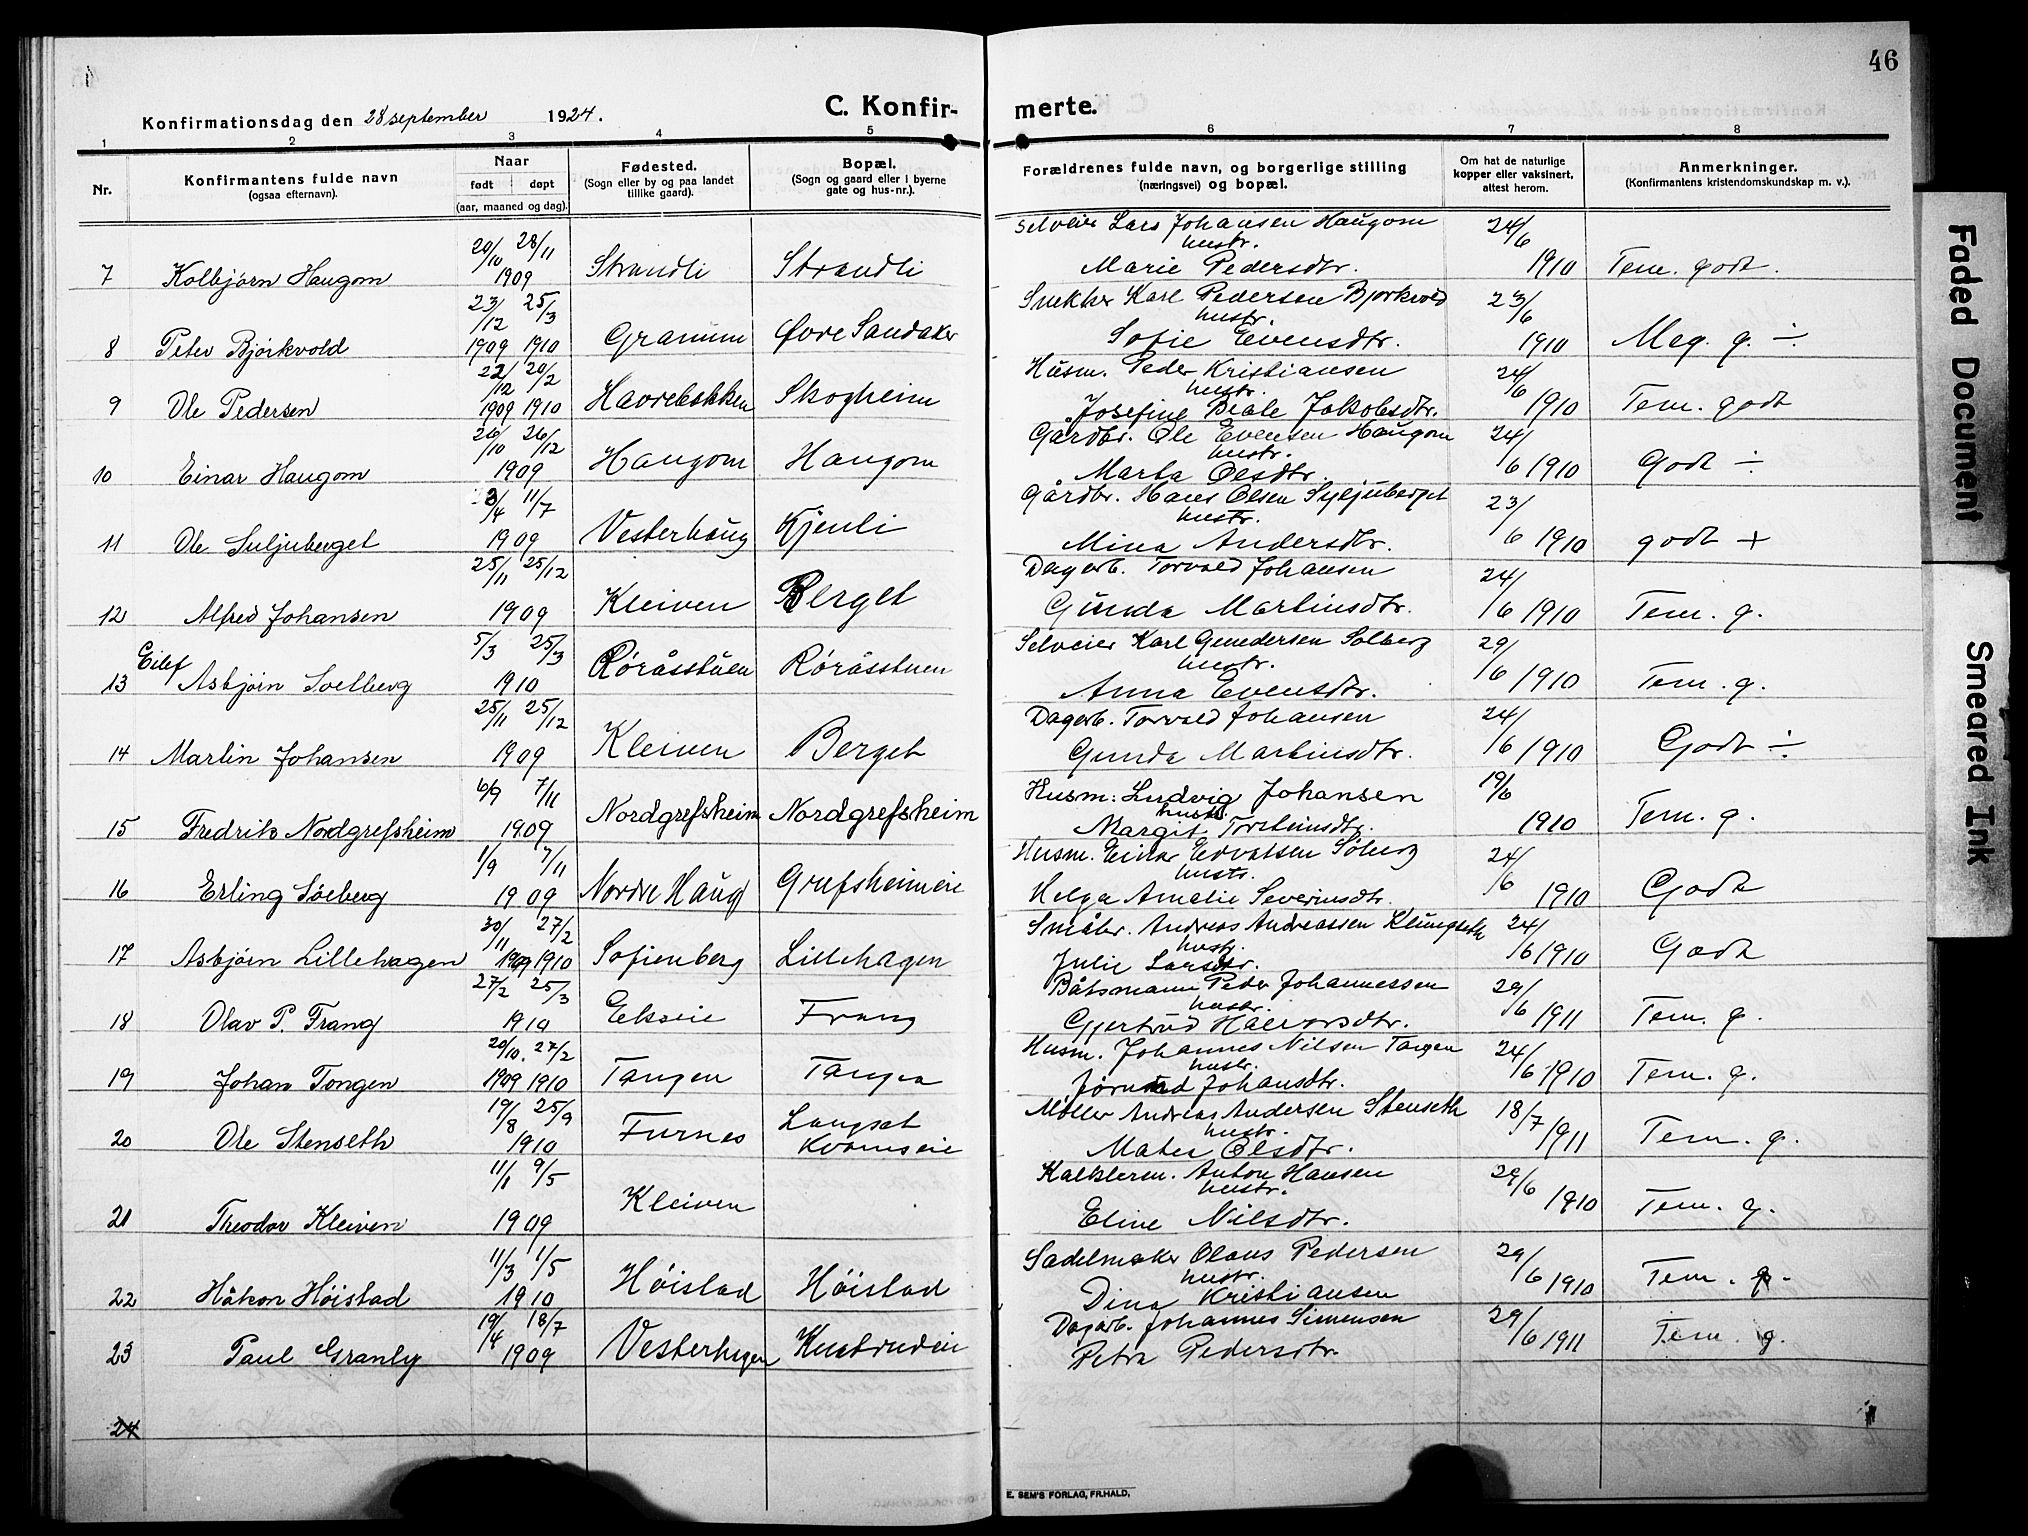 46
Konfirmationsdag den 28 september 1924.
C. Konfir-
merte.
1 2 3 4 5 6 7 8
Nr.
Konfirmantens fulde navn
(ogsaa efternavn).
Naar
født døpt
(aar, maaned og dag).
Fødested.
(Sogn eller by og paa landet
tillike gaard).
Bopæl.
(Sogn og gaard eller i byerne
gate og hus-nr.).
Forældrenes fulde navn, og borgerlige stilling
(næringsvei) og bopæl.
Om hat de naturlige
kopper eller vaksinert,
attest herom.
Anmerkninger.
(Konfirmantens kristendomskundskap m. v.).
7 Kolbjørn Haugom 20/10 28/11 1909 Strandli Strandli Selveier Lars Johansen Haugom hustr. Marie Pedersdtr. 24/6 1910 Tem. godt.
8 Peter Bjørkvold 23/12 1909 25/3 1910 Granum Øvre Sandaker Snekker Karl Pedersen Bjørkvold hustr. Sofie Evensdtr. 23/6 1910 Meg. g. ÷
9 Ole Pedersen 22/12 1909 20/2 1910 Havrebakken Skogheim Husm. Peder Kristiansen hustr. Josefine Beate Jakobsdtr. 24/6 1910 Tem. godt
10 Einar Haugom 26/10 26/12 1909 Haugom Haugom Gårdbr. Ole Evensen Haugom hustr. Marta Olsdtr. 24/6 1910 Godt ÷
11 Ole Suljuberget 3/4 11/7 1909 Vesterhaug Kjenli Gårdbr. Hans Olsen Syljuberget hustr. Mina Andersdtr. 23/6 1910 godt +
12 Alfred Johansen 25/11 25/12 1909 Kleiven Berget Dagarb. Torvald Johansen Gunda Martinsdtr. 24/6 1910 Tem. g.
13 Eilef Asbjørn Solberg 5/3 25/3 1910 Røråsstuen Røråsstuen Selveier Karl Gundersen Solberg hustr. Anna Evensdtr. 29/6 1910 Tem. g.
14 Martin Johansen 25/11 25/12 1909 Kleiven Berget Dagarb. Torvald Johansen Gunda Martinsdtr. 24/6 1910 Godt ÷
15 Fredrik Nordgrefsheim 6/9 7/11 1909 Nordgrefsheim Nordgrefsheim Husm. Ludvig Johansen hustr. Margit Torsteinsdtr. 19/6 1910 Tem. g.
16 Erling Søberg 1/9 7/11 1909 Nordre Haug Grefsheimeie Husm. Einar Edvartsen Søberg hustr. Helga Amalie Severinsdtr. 24/6 1910 Godt
17 Asbjørn Lillehagen 30/11 1909 27/2 1910 Sofienberg Lillehagen Småbr. Andreas Andreassen Klungseth hustr. Julie Larsdtr. 24/6 1910 Godt
18 Olav P. Frang 27/2 25/3 1910 Ekseie Frang Båtsmann Peder Johannessen hustr. Gjertrud Halvorsdtr. 29/6 1911 Tem. g.
19 Johan Tongen 20/10. 1909 27/2 1910 Tangen Tangen Husm. Johannes Nilsen Tangen hustr. Jørund Johansdtr. 24/6 1910 Tem. g.
20 Ole Stenseth 19/8 25/9 1910 Furnes Langset Kvamseie Møller Andreas Andersen Stenseth hustr. Mathea Olsdtr. 18/7 1911 Tem. g.
21 Theodor Kleiven 11/1 9/5 1909 Kleiven Anton Hansen hustr. Eline Nilsdtr. 29/6 1910 Tem. g.
22 Håkon Høistad 11/3 1/5 1910 Høistad Høistad Sadelmaker Olaus Pedersen hustr. Dina Kristiansen 29/6 1910 Tem. g.
23 Paul Granly 19/4 18/7 1909 Vesterhagen Dagarb. Johannes Simensen Petra Pedersdtr. 29/6 1911 Tem. g.
24
E. SEM'S FORLAG, FR.HALD.
Faded Document
Smeared Ink